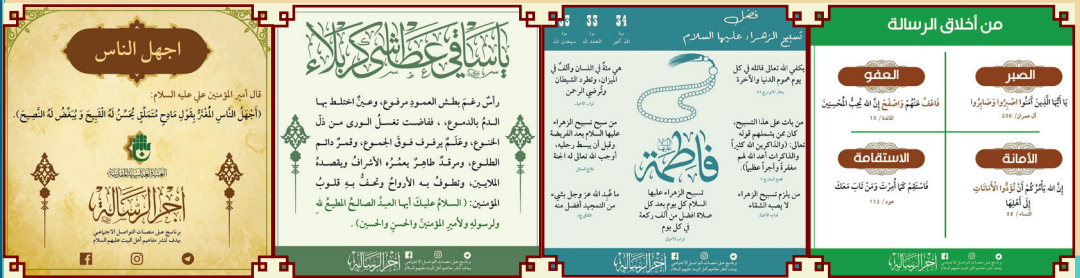 من أخلاق الرسالة
الصبر
يَا أَيُّهَا الَّذِينَ آمَنُوا اصْبِرُوا وَصَابِرُوا
آل عمران/ 200
العفو
فَاعْفُ عَنْهُمْ وَاصْفَحْ إِنَّ اللَّهَ يُحِبُّ الْمُحْسِنِينَ
المائدة / 13
الأمانة
إِنَّ اللَّهَ يَأْمُرُكُمْ أَنْ تُؤَدُّوا الْأَمَانَاتِ
إِلَى أَهْلِهَا
النساء / 58
الاستقامة
فَاسْتَقِمْ كَمَا أُمِرْتَ وَمَنْ تَابَ مَعَكَ
هود/ 112
أجر الرسالة
فضل
تسبيح الزهراء عليها السلام
34
الله أكبر
33
الحمد لله
33
سبحان الله
يكفي الله تعالى قائله في كل
يوم هموم الدنيا والآخرة
هي مئةٌ في اللسان وألفٌ في
الميزان، وتطرد الشيطان
وتُرضي الرحمن
من بات على هذا التسبيح،
كان ممن يشملهم قوله
تعالى: (والذاكرين الله كثيراً
والذاكرات أعد الله لهم
مغفرةً وأجراً عظيماً).
من سبح تسبيح الزهراء
عليها السلام بعد الفريضة
وقبل أن يبسط رجليه،
أوجب الله تعالى له الجنة
فاطمة
من يلزم تسبيح الزهراء
لا يصبه الشقاء
تسبيح الزهراء عليها
السلام كل يوم بعد كل
صلاة أفضل من ألف ركعة
في كل يوم
ما عُبد الله عز وجل بشيء
من التمجيد أفضل منه
أجر الرسالة
يا ساقي عطاشى كربلاء
رأسٌ رغم بطش العمود مرفوع، وعينٌ اختلط بها
الدمُ بالدموع، ففاضت تغسلُ الورى من ذلّ
الخنوع، وعَلَمٌ يرفرف فوق الجموع، وقمرٌ دائم
الطلوع، ومرقدٌ طاهرٌ يعمُرُه الأشرافُ ويقصدهُ
الملايين، وتطوف به الأرواحُ وتحفُّ بهِ قلوبُ
المؤمنين: (السلامُ عليكَ أيها العبدُ الصالحُ المطيعُ للهِ
ولرسولهِ ولأميرِ المؤمنينَ والحسنِ والحسينِ).
أجر الرسالة
اجهل الناس
قال أمير المؤمنين علي عليه السلام:
(أَجهَلُ النَّاسِ المُغْتَرُّ بِقَولِ مَادِحٍ مُتَمَلِّقٍ يُحَسِّنُ لَهُ القَبِيحَ وَ يُبَغِّضُ لَهُ النَّصِيحَ).
أجر الرسالة
برنامج على منصات التواصل الاجتماعي
يهدف لنشر مفاهيم أهل البيت عليهم السلام